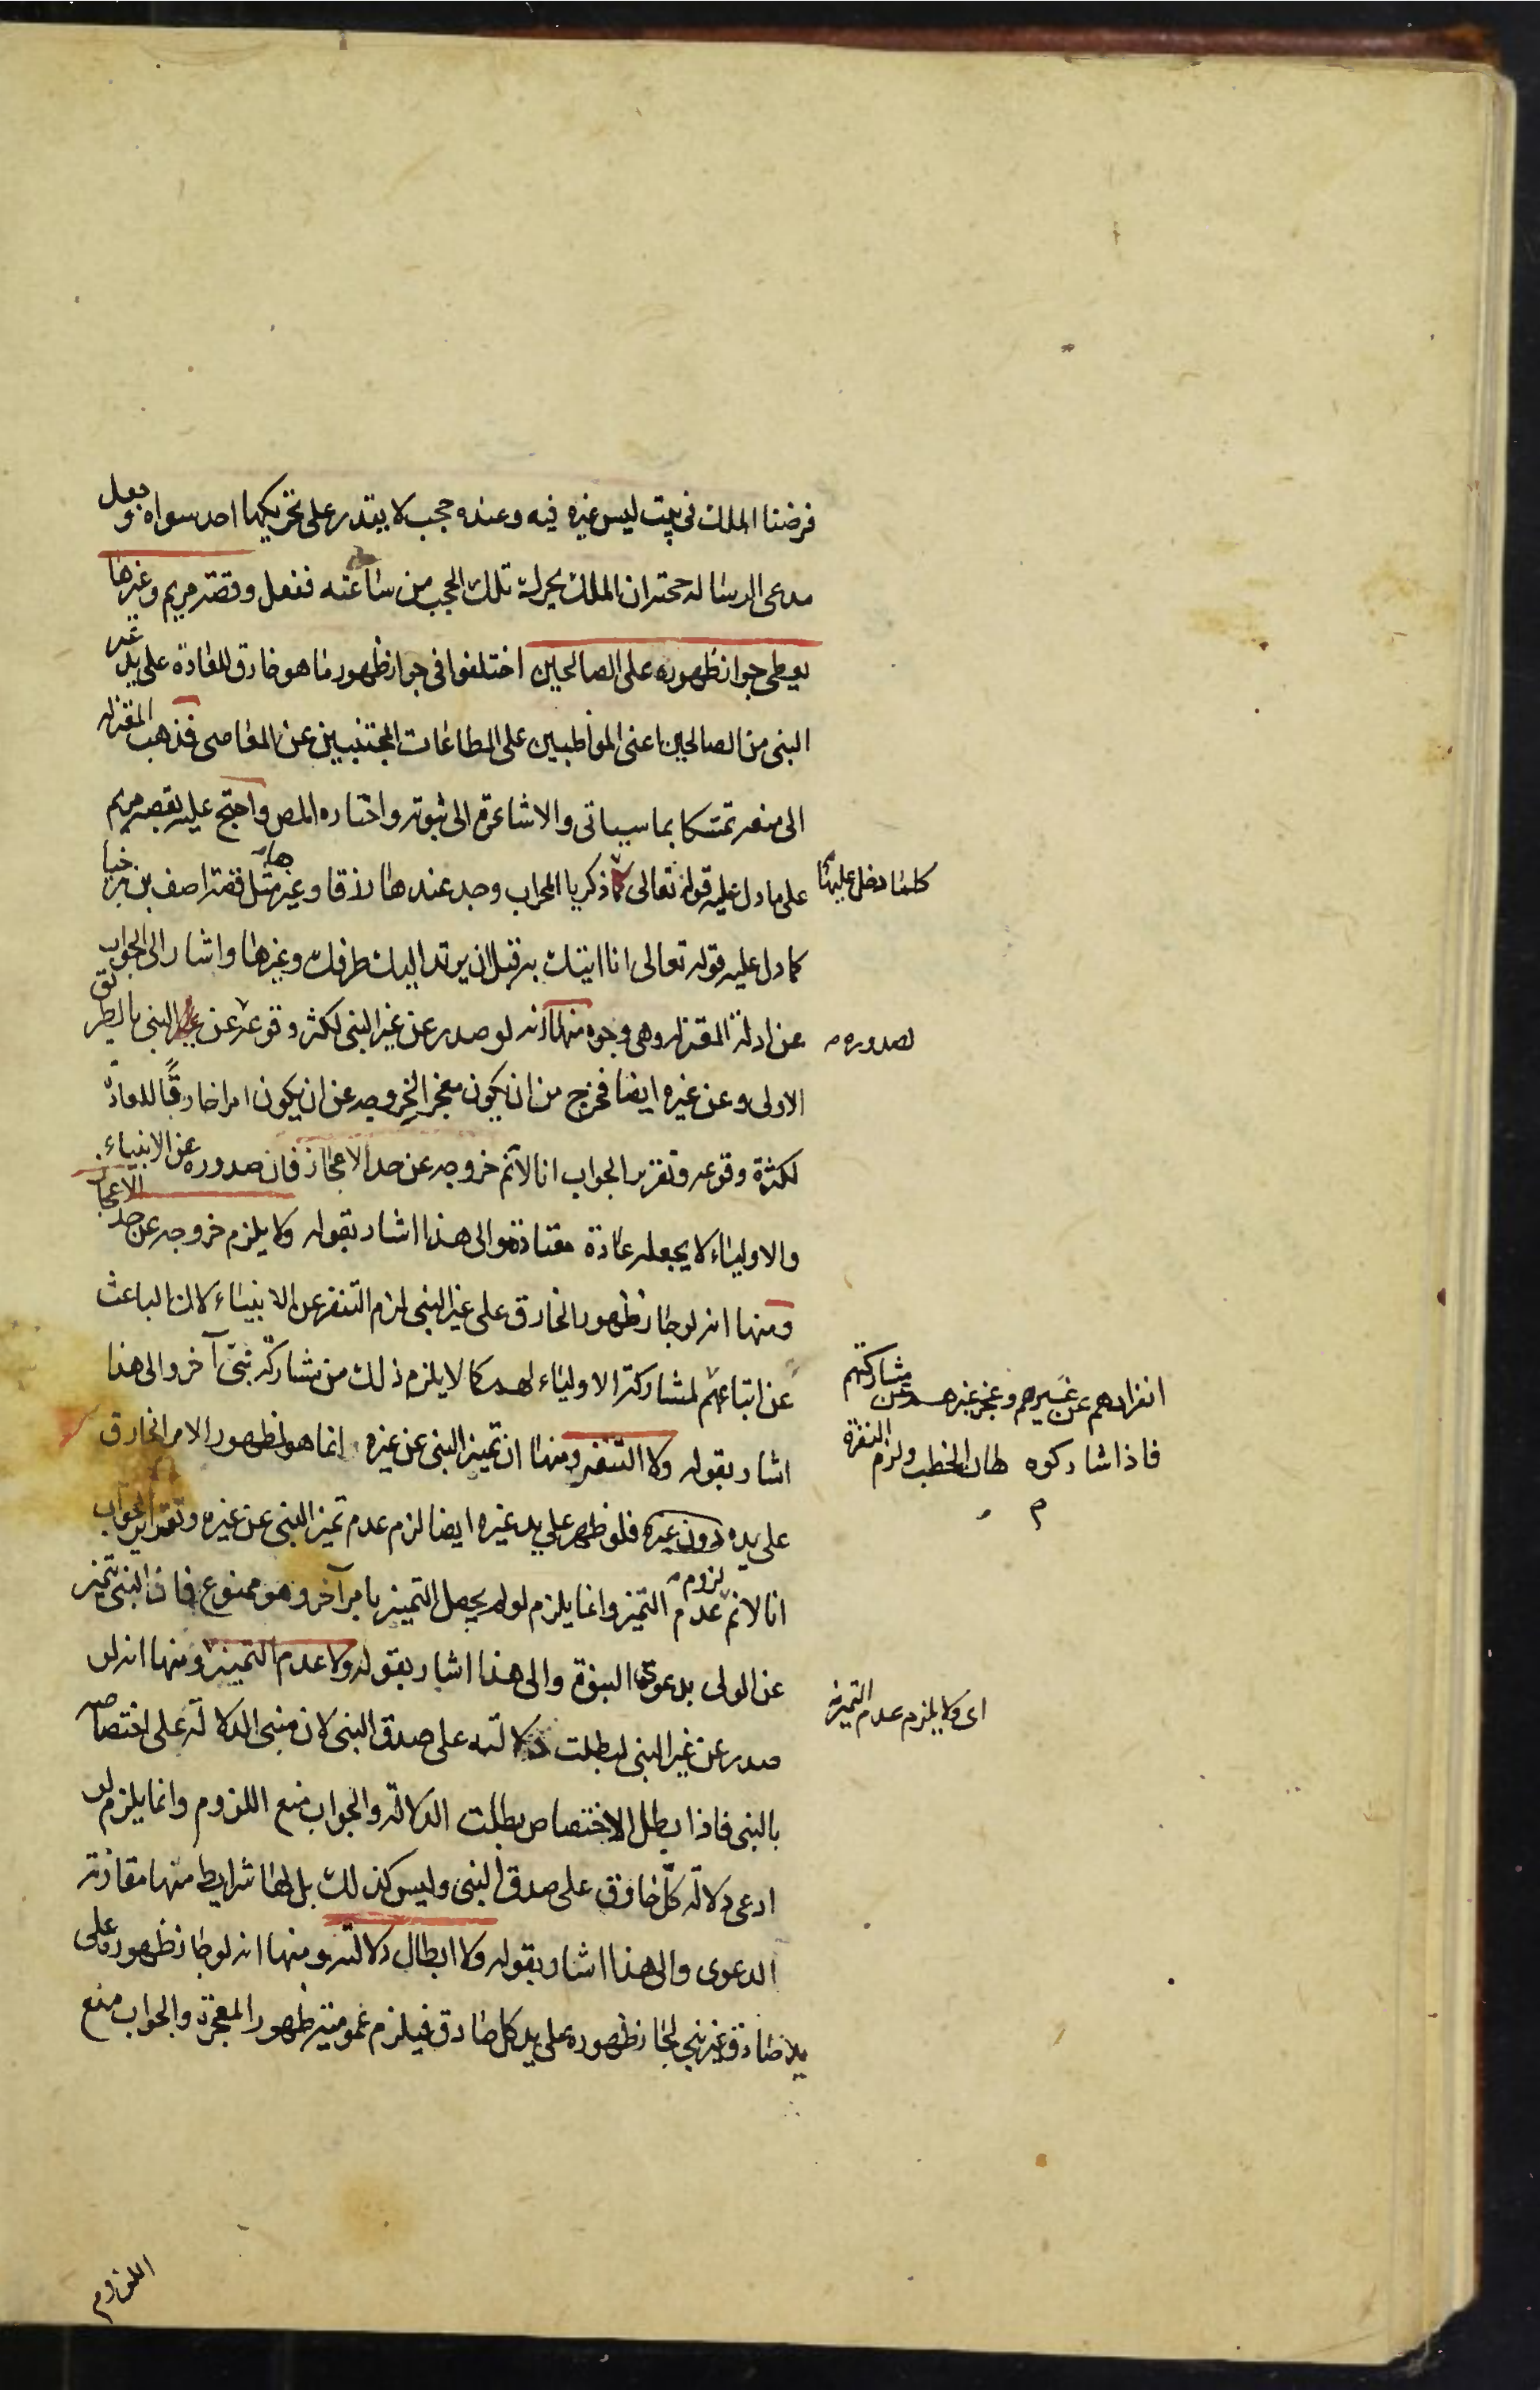 فرضنا الملك فى بيت ليس غيره فيه وعنده حجب لا يقدر على تحريكها احد سواه وجعل
مدعى الرسالة حجته ان الملك يحرك تلك الحجب من ساعته ففعل وقصة مريم وغيرها
يعطى جواز ظهوره على الصالحين اختلفوا فى جواز ظهور ما هو خارق للعادة على يد غير
النبى من الصالحين اعنى المواظبين على الطاعات المجتنبين عن المعاصى فذهب المعتزله
الى منعه تمسكا بما سياتى والاشاعرة الى ثبوته واختاره المص واحتج عليه بقصة مريم
على ما دل عليه قوله تعالى زكريا المحراب وجد عندها رزقا وغيرها مثل قصة اصف بن برخيا
كلما دخل عليها
كما دل عليه قوله تعالى انا اتيك به قبل ان يرتد اليك طرفك وغيرها واشار الى الجواب
عن ادلة المعتزله وهى وجوه منها انه لو صدر عن غير النبى لكثر وقوعه عن النبى بالطريق
لصدوره
الاولى وعن غيره ايضا فخرج من ان يكون معجز الخروجه عن ان يكون امرا خارقًا للعادة
لكثرة وقوعه وتقرير الجواب انا لا نم خروجه عن حد الاعجاز فان صدوره عن الانبياء
والاولياء لا يجعله عادة معتادة والى هذا اشار بقوله ولا يلزم خروجه عن حد الاعجاز
ومنها انه لو جاز ظهور الخارق على غير النبى لزم التنفر عن الانبياء لان الباعث
عن اتباعهم لمشاركة الاولياء لهم كما لا يلزم ذلك من مشاركة نبى آخر والى هذا
انفرادهم عن غيرهم وعجز غيرهم عن مشاركتهم
فاذا شاركوه هان الخطب ولزم النفرة
م
اشار بقوله ولا التنفر ومنها ان تميز النبى عن غيره انما هو لظهور الامر الخارق
على يده دون غيره فلو ظهر على يد غيره ايضا لزم عدم تميز النبى عن غيره وتقرير الجواب
انا لا نم لزوم عدم التميز وانما يلزم لو لم يحصل التميز بامر آخر وهو ممنوع فان النبى يتميز
عن الولى بدعوى النبوة والى هذا اشار بقوله ولا عدم التميز ومنها انه لو
اى ولا يلزم عدم التميز
صدر عن غير النبى لبطلت دلالته على صدق النبى لان مبنى الدلالة على اختصاصه
بالنبى فاذا بطل الاختصاص بطلت الدلالة والجواب منع اللزوم وانما يلزم لو
ادعى دلالة كل خارق على صدق النبى وليس كذلك بل لها شرايط منها مقارنة
الدعوى والى هذا اشار بقوله ولا ابطال دلالته ومنها انه لو جاز ظهوره على
يد صادق غير نبى لجاز ظهوره على يد كل صادق فيلزم عمومية ظهور المعجزة والجواب منع
اللزوم